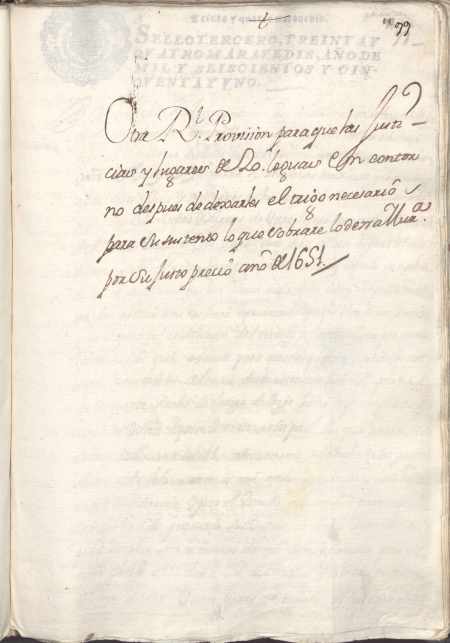 99
SELLO TERCERO, TREINTA Y
QVATRO MARAVEDIS, AÑO DE
MIL Y SEISCIENTOS Y CIN-
QVENTA Y VNO.
Otra Rl. Provision para que las Justi-
cias y lugares de leguas en contor
no despues de dexarles el trigo necesario
para su sustento lo que sobrare lo den a
por su justo precio año de 1651.